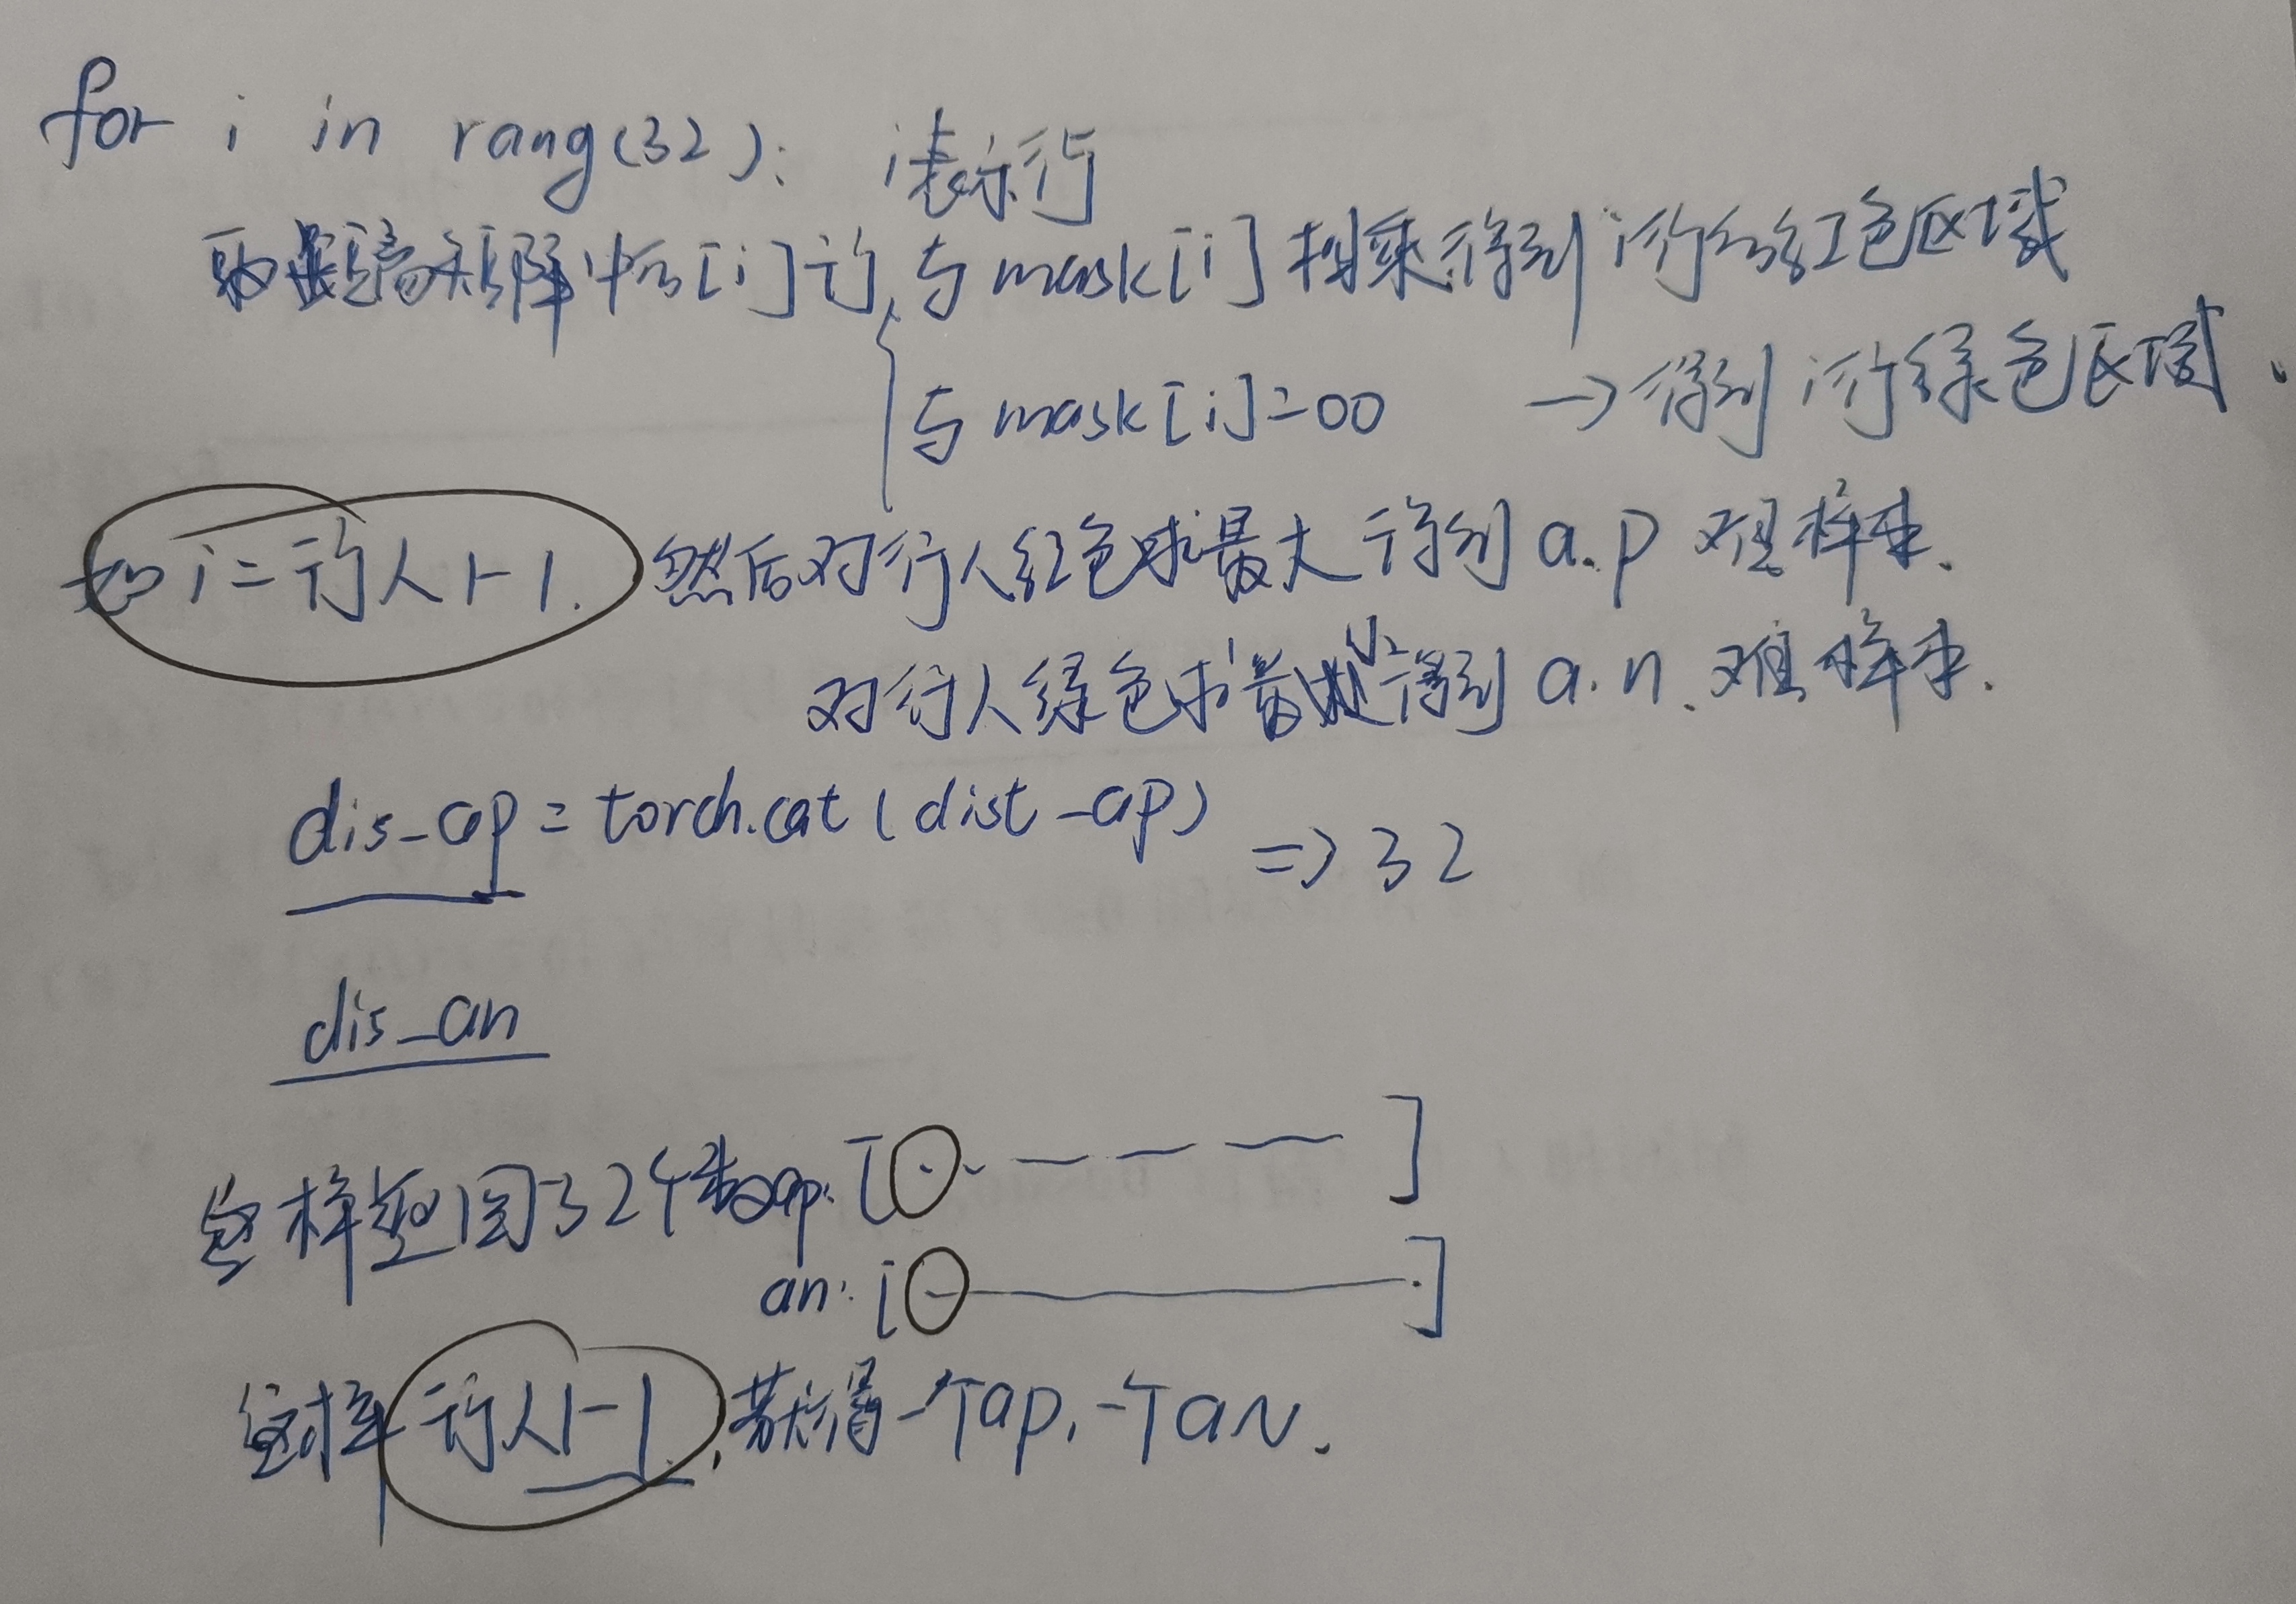 for i in rang(32): i表示行
取距离矩阵中的[i]行,与mask[i]相乘得到i行的红色区域
与mask[i]=00 → 得到i行绿色区域.
如i=行人1-1. 然后对行人红色求最大得到a.p难样本.
对行人绿色求最小得到a.n.难样本.
dis_ap = torch.cat(dist_ap) => 32
dis_an
这样图32个ap: [ ]
an: [ ]
这样行人1-1,获得一个ap,一个an.